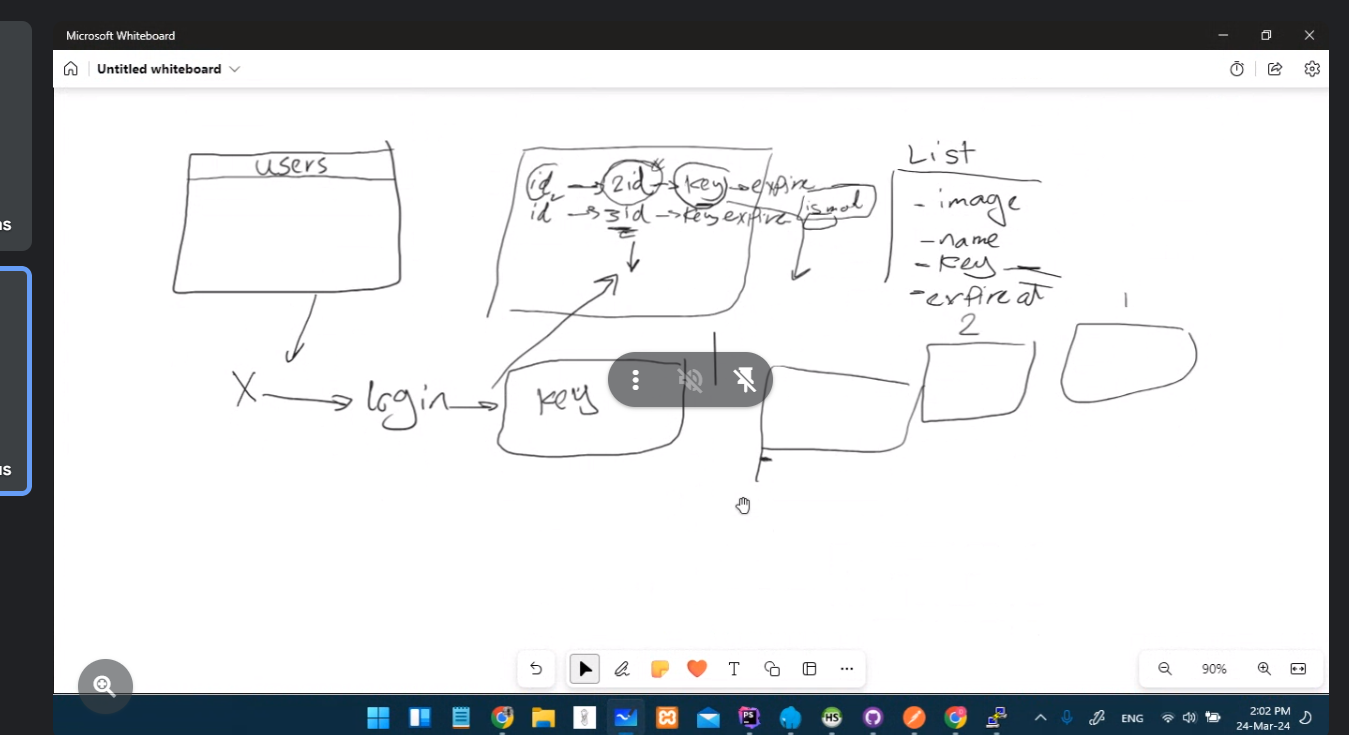 Microsoft Whiteboard
Untitled whiteboard
users
id → 2id → key → expire
id → 3id → key expire
List
- image
- name
- key
- expire at
2
1
X → login →
key
ns
us
T
90%
PS
HS
ENG
2:02 PM
24-Mar-24